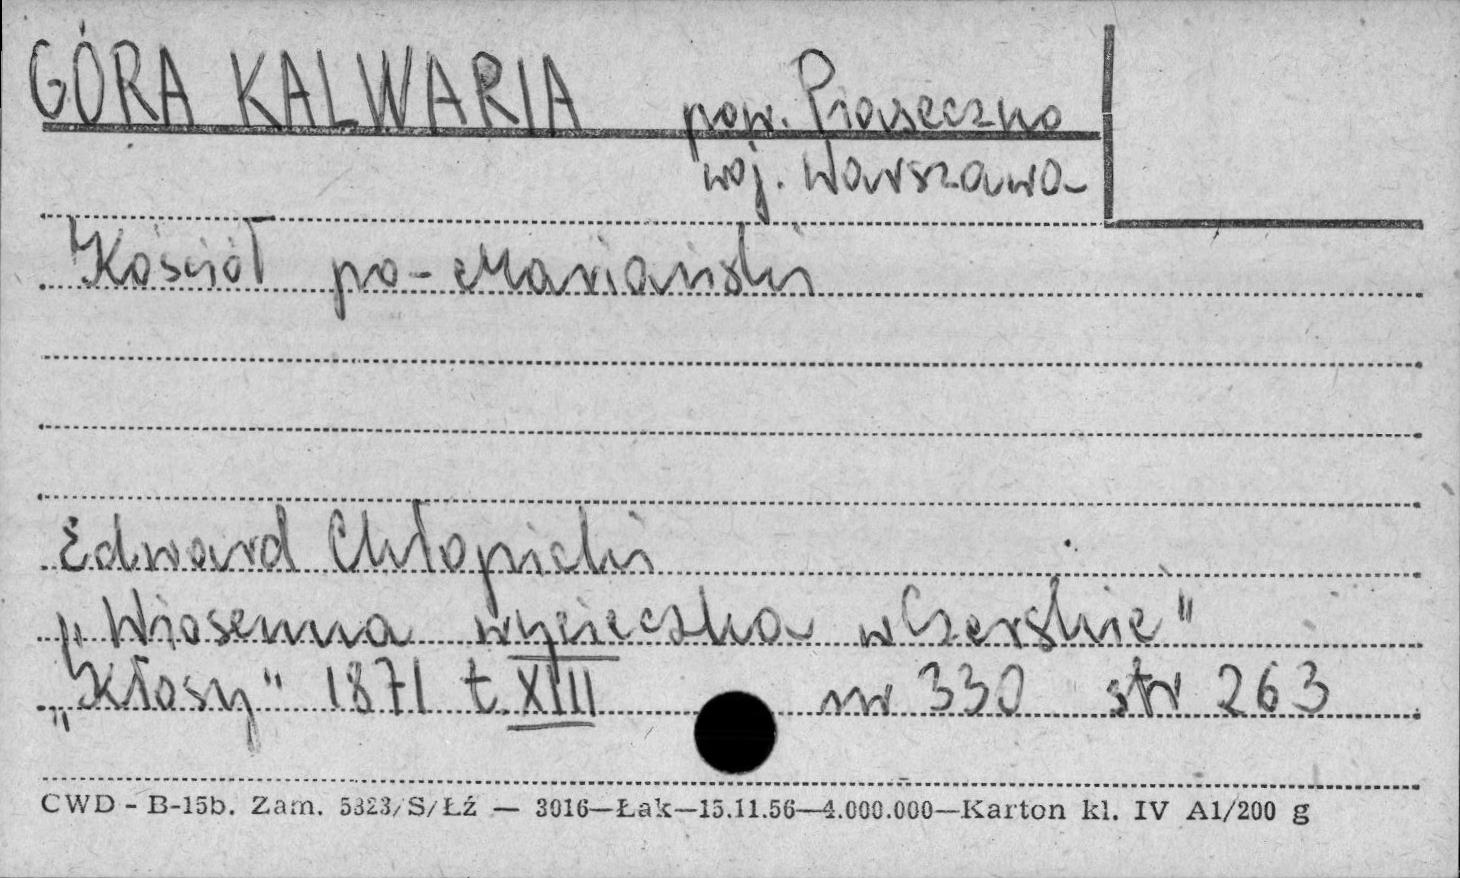 GÓRA KALWARIA pow. Piaseczno
woj. Warszawa
Kościół po-Mariański
Edward Chłopicki
„Wiosenna wycieczka w Czerskie"
„Kłosy" 1871 t. XIII nr 330 str 263
CWD - B-15b. Zam. 5323/S/Łź — 3016—Łak—15.11.56—4.000.000—Karton kl. IV A1/200 g